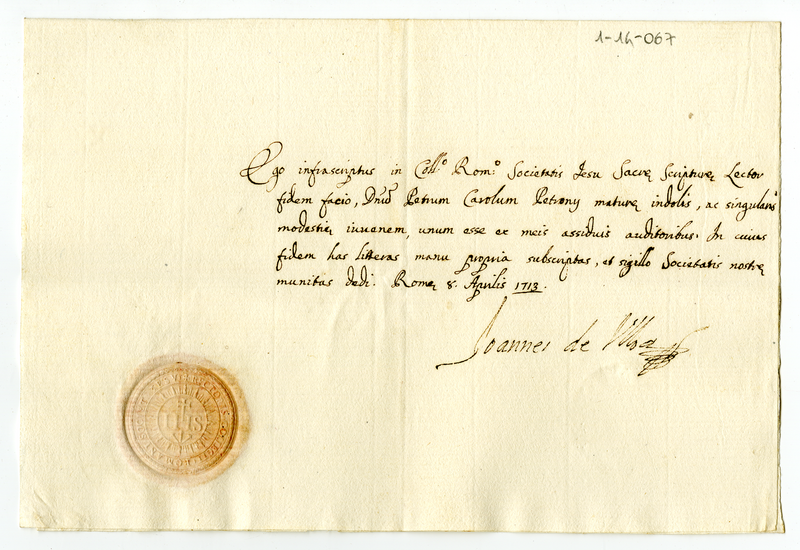 1-14-067
Ego infrascriptus in Coll:º Rom:º Societatis Jesu Sacrę Scripturę Lector
fidem facio, Dnũ Petrum Carolum Petrony maturę indolis, ac singularis
modestię iuuenem, unum esse ex meis assiduis auditoribus. In cuius
fidem has litteras manu propria subscriptas, et sigillo Societatis nostrę
munitas dedi. Romę 8. Aprilis 1713.
Joannes de
IHS